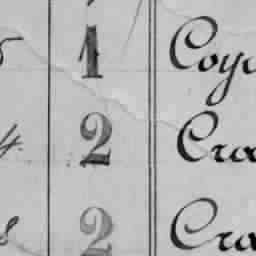 5 1 Coy
4. 2 Cra
8 2 Cra